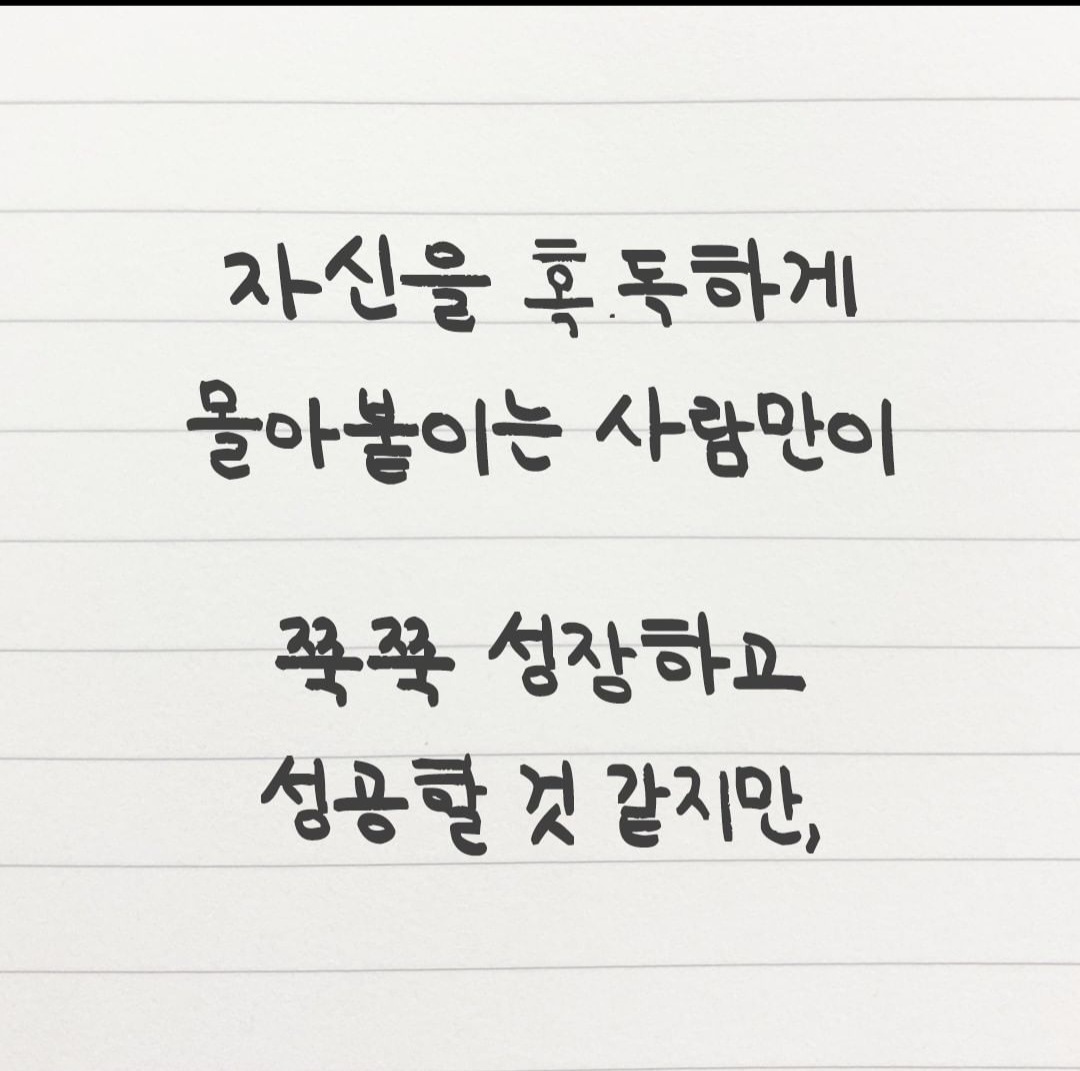 자신을 혹.독하게
몰아붙이는 사람만이
쭉쭉 성장하고
성공할 것 같지만,